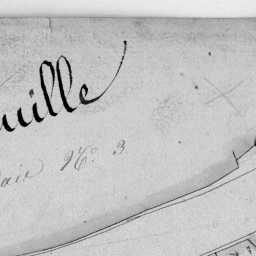 uille
aie N.º 3